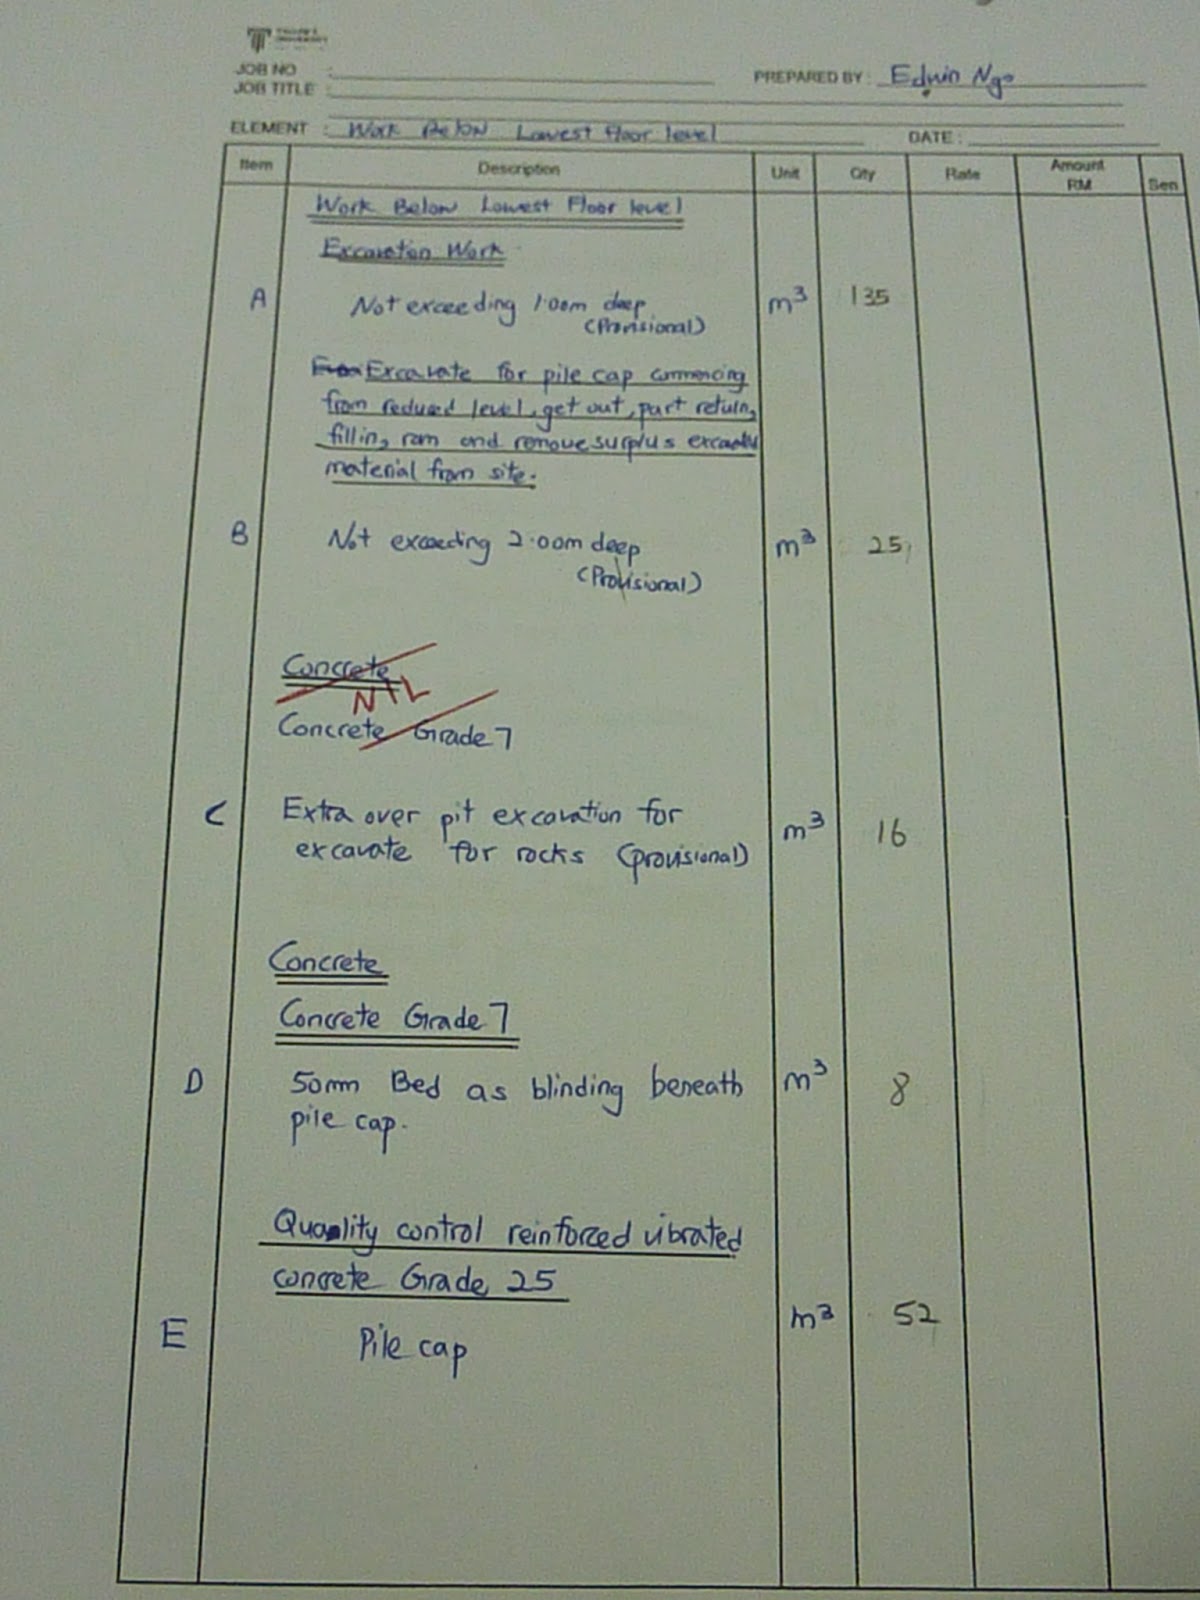 JOB NO :
PREPARED BY : Edwin Ngo
JOB TITLE :
ELEMENT : Work Below Lowest Floor level
DATE :
Item Description Unit Qty Rate Amount RM Sen
Work Below Lowest Floor level
Excavation Work
A Not exceeding 1.00m deep m³ 135
(Provisional)
Excavate for pile cap commencing
from reduced level, get out, part return,
filling, ram and remove surplus
material from site.
B Not exceeding 2.00m deep m³ 25
(Provisional)
Concrete
NIL
Concrete Grade 7
C Extra over pit excavation for m³ 16
excavate for rocks (provisional)
Concrete
Concrete Grade 7
D 50mm Bed as blinding beneath m³ 8
pile cap.
Quality control reinforced vibrated
concrete Grade 25
E Pile cap m³ 52